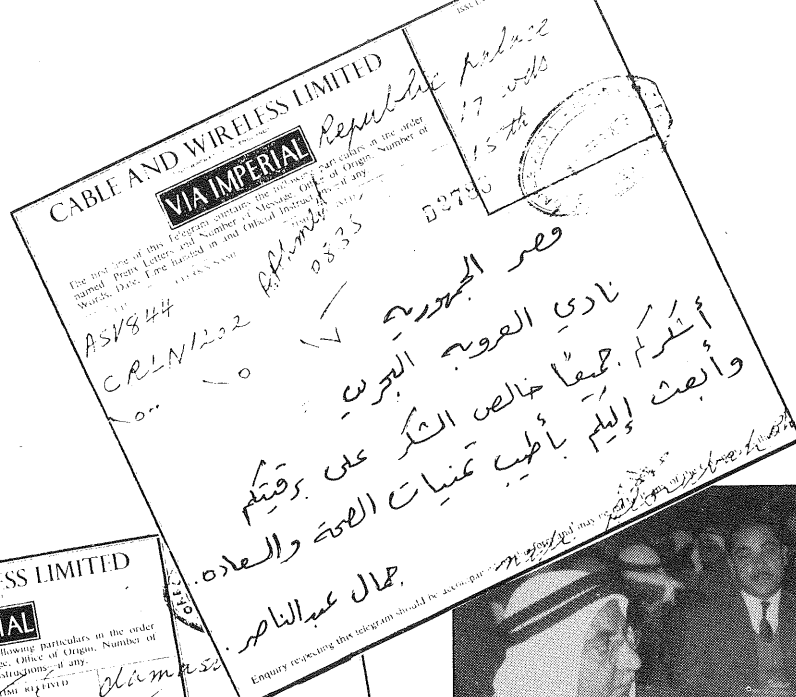 CABLE AND WIRELESS LIMITED
VIA IMPERIAL
The first line of this Telegram contains the following particulars in the order
named: Prefix Letters and Number of Message, Office of Origin, Number of
Words, Date, Time handed in and Official Instructions—if any.
Republic palace
17 wds
15th
D2783
0835
ASV844
CRLN1202
١٥٠٠ ١٥ ١٧
قصر الجمهوريه
نادي العروبه البحرين
أشكركم جميعًا خالص الشكر على برقيتكم
وأبعث إليكم بأطيب تمنيات الصحة والسعاده.
جمال عبد الناصر.
Enquiry respecting this telegram should be
and may be
SS LIMITED
IAL
llowing particulars in the order
ge, Office of Origin, Number of
structions—if any.
TIME RECEIVED